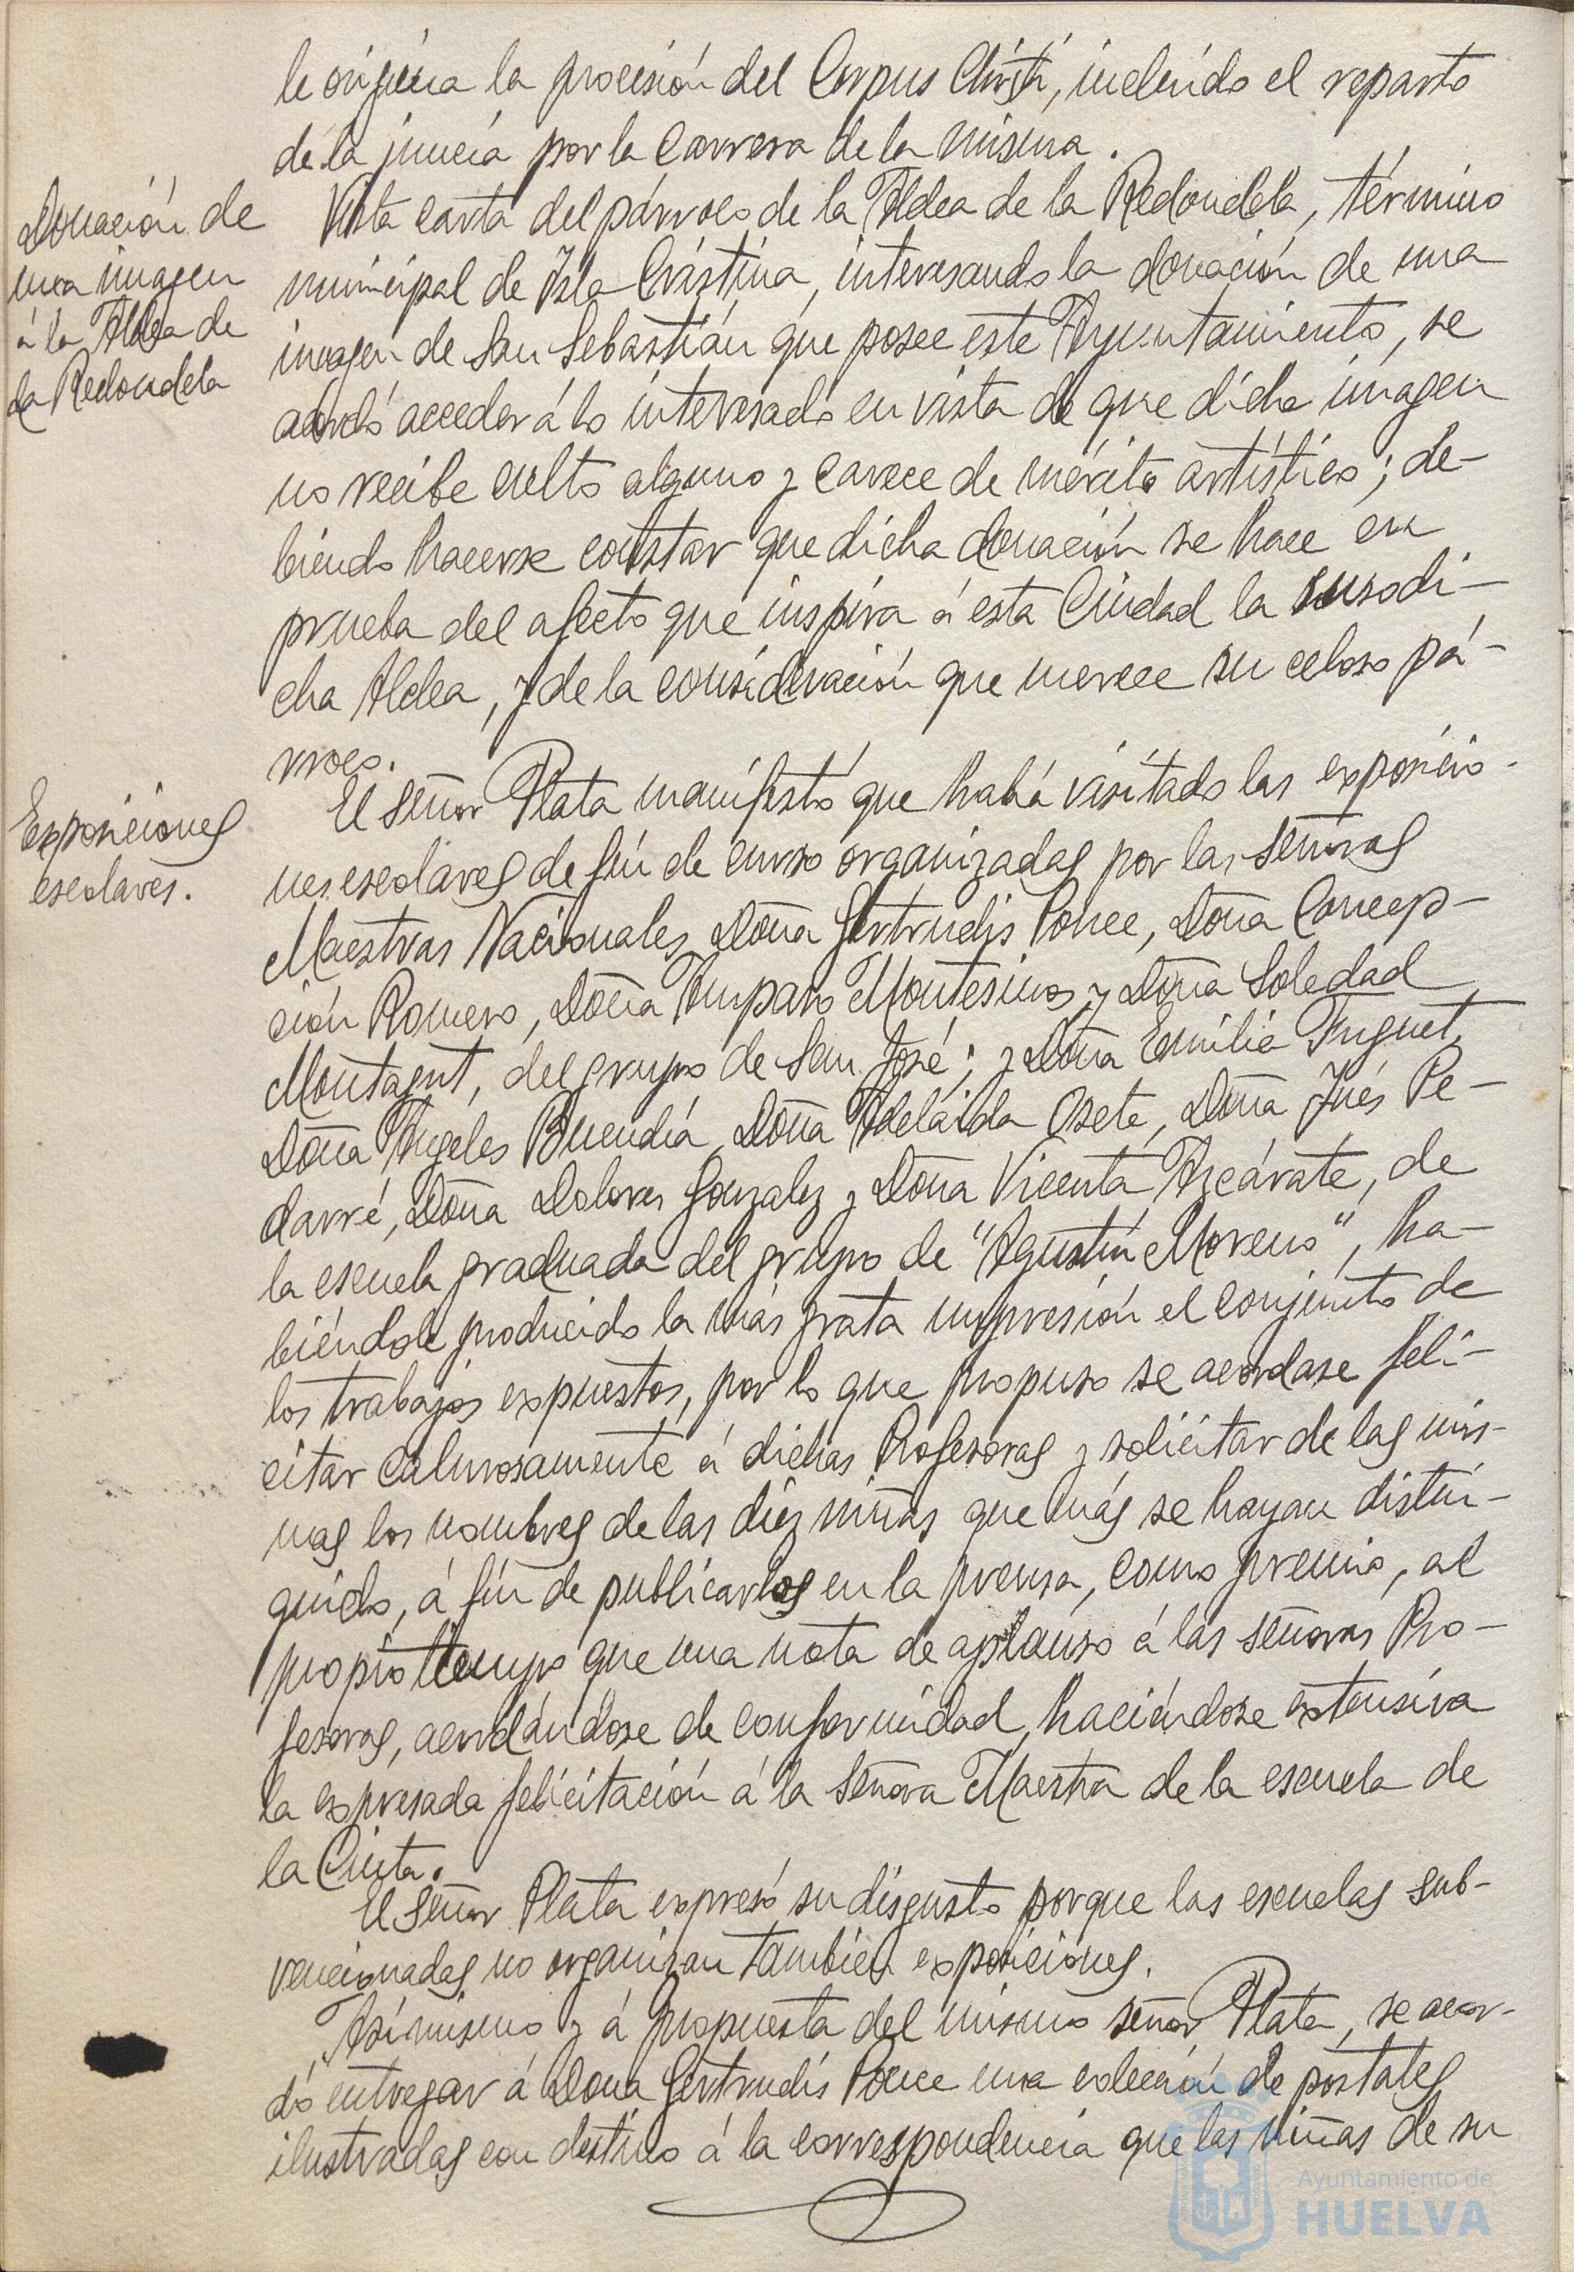 le origina la procesión del Corpus Christi, incluido el reparto
de la juncia por la Carrera de la misma.
Donación de
una imagen
á la Aldea de
la Redondela
Vista carta del párroco de la Aldea de la Redondela, término
municipal de Isla Cristina, interesando la donación de una
imagen de San Sebastián que posee este Ayuntamiento, se
acordó acceder á lo interesado en vista de que dicha imagen
no recibe culto alguno y carece de mérito artístico; de-
biendo hacerse constar que dicha donación se hace en
prueba del afecto que inspira á esta Ciudad la susodi-
cha Aldea, y de la consideración que merece su celoso pá-
rroco.
Exposiciones
escolares.
El Señor Plata manifestó que había visitado las exposicio-
nes escolares de fin de curso organizadas por las Señoras
Maestras Nacionales Doña Gertrudis Ponce, Doña Concep-
ción Romero, Doña Amparo Montesinos y Doña Soledad
Montagut, del grupo de San José; y Doña Emilia Fuguet,
Doña Angeles Buendía, Doña Adelaida Osete, Doña Inés Pe-
darré, Doña Dolores Gonzalez y Doña Vicenta Azcárate, de
la escuela graduada del grupo de "Agustín Moreno", ha-
biéndole producido la más grata impresión el conjunto de
los trabajos expuestos, por lo que propuso se acordase feli-
citar calurosamente á dichas Profesoras y solicitar de las mis-
mas los nombres de las diez niñas que más se hayan distin-
guido, á fin de publicarlos en la prensa, como premio, al
propio tiempo que una nota de aplauso á las señoras Pro-
fesoras, acordándose de conformidad, haciéndose extensiva
la expresada felicitación á la Señora Maestra de la escuela de
la Cinta.
El Señor Plata expresó su disgusto porque las escuelas sub-
vencionadas no organizan también exposiciones.
Asimismo y á propuesta del mismo señor Plata, se acor-
dó entregar á Doña Gertrudis Ponce una colección de postales
ilustradas con destino á la correspondencia que las niñas de su
Ayuntamiento de
HUELVA